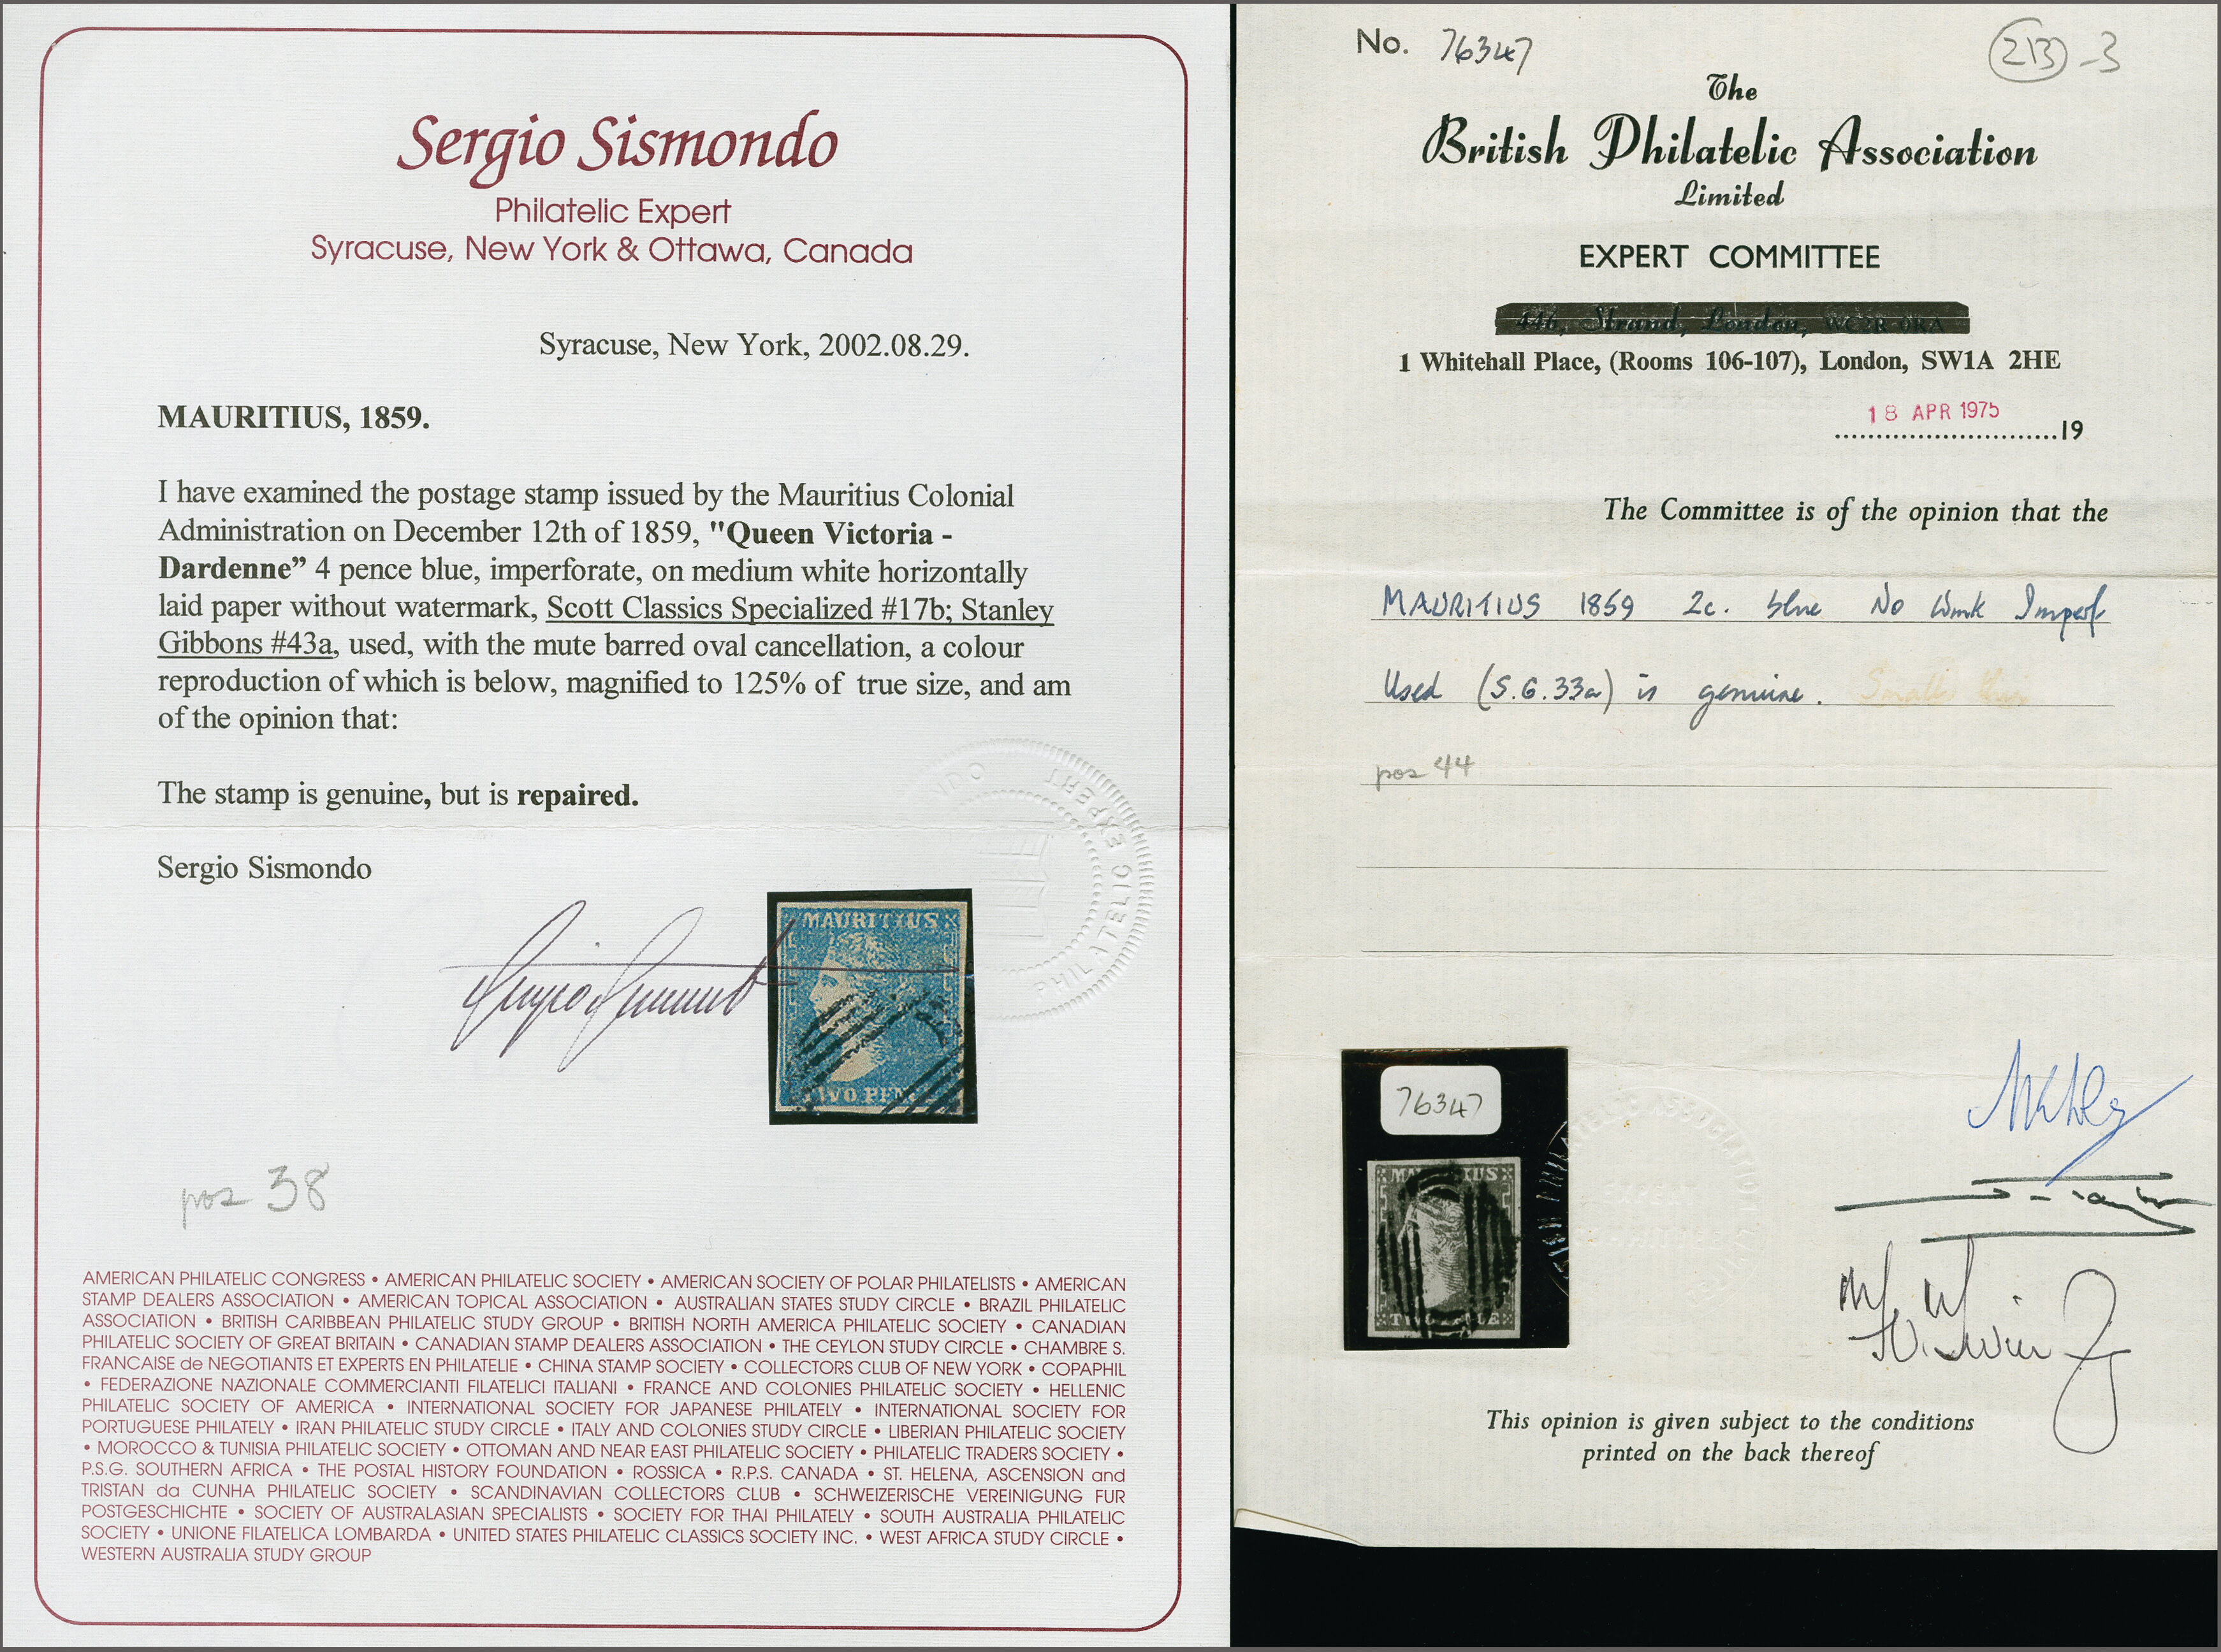 Sergio Sismondo
Philatelic Expert
Syracuse, New York & Ottawa, Canada
Syracuse, New York, 2002.08.29.
MAURITIUS, 1859.
I have examined the postage stamp issued by the Mauritius Colonial
Administration on December 12th of 1859, "Queen Victoria -
Dardenne” 4 pence blue, imperforate, on medium white horizontally
laid paper without watermark, Scott Classics Specialized #17b; Stanley
Gibbons #43a, used, with the mute barred oval cancellation, a colour
reproduction of which is below, magnified to 125% of true size, and am
of the opinion that:
The stamp is genuine, but is repaired.
Sergio Sismondo
PHILATELIC EXPERT
MAURITIUS
TWO PEN
pos 38
AMERICAN PHILATELIC CONGRESS • AMERICAN PHILATELIC SOCIETY • AMERICAN SOCIETY OF POLAR PHILATELISTS • AMERICAN
STAMP DEALERS ASSOCIATION • AMERICAN TOPICAL ASSOCIATION • AUSTRALIAN STATES STUDY CIRCLE • BRAZIL PHILATELIC
ASSOCIATION • BRITISH CARIBBEAN PHILATELIC STUDY GROUP • BRITISH NORTH AMERICA PHILATELIC SOCIETY • CANADIAN
PHILATELIC SOCIETY OF GREAT BRITAIN • CANADIAN STAMP DEALERS ASSOCIATION • THE CEYLON STUDY CIRCLE • CHAMBRE S.
FRANCAISE de NEGOTIANTS ET EXPERTS EN PHILATELIE • CHINA STAMP SOCIETY • COLLECTORS CLUB OF NEW YORK • COPAPHIL
• FEDERAZIONE NAZIONALE COMMERCIANTI FILATELICI ITALIANI • FRANCE AND COLONIES PHILATELIC SOCIETY • HELLENIC
PHILATELIC SOCIETY OF AMERICA • INTERNATIONAL SOCIETY FOR JAPANESE PHILATELY • INTERNATIONAL SOCIETY FOR
PORTUGUESE PHILATELY • IRAN PHILATELIC STUDY CIRCLE • ITALY AND COLONIES STUDY CIRCLE • LIBERIAN PHILATELIC SOCIETY
• MOROCCO & TUNISIA PHILATELIC SOCIETY • OTTOMAN AND NEAR EAST PHILATELIC SOCIETY • PHILATELIC TRADERS SOCIETY •
P.S.G. SOUTHERN AFRICA • THE POSTAL HISTORY FOUNDATION • ROSSICA • R.P.S. CANADA • ST. HELENA, ASCENSION and
TRISTAN da CUNHA PHILATELIC SOCIETY • SCANDINAVIAN COLLECTORS CLUB • SCHWEIZERISCHE VEREINIGUNG FUR
POSTGESCHICHTE • SOCIETY OF AUSTRALASIAN SPECIALISTS • SOCIETY FOR THAI PHILATELY • SOUTH AUSTRALIA PHILATELIC
SOCIETY • UNIONE FILATELICA LOMBARDA • UNITED STATES PHILATELIC CLASSICS SOCIETY INC. • WEST AFRICA STUDY CIRCLE •
WESTERN AUSTRALIA STUDY GROUP
No. 76347
213 -3
The
British Philatelic Association
Limited
EXPERT COMMITTEE
446, Strand, London, WC2R 0RA
1 Whitehall Place, (Rooms 106-107), London, SW1A 2HE
18 APR 1975
19
The Committee is of the opinion that the
MAURITIUS 1859 2c. blue No Wmk Imperf
Used (S.G.33a) is genuine.
pos 44
76347
This opinion is given subject to the conditions
printed on the back thereof